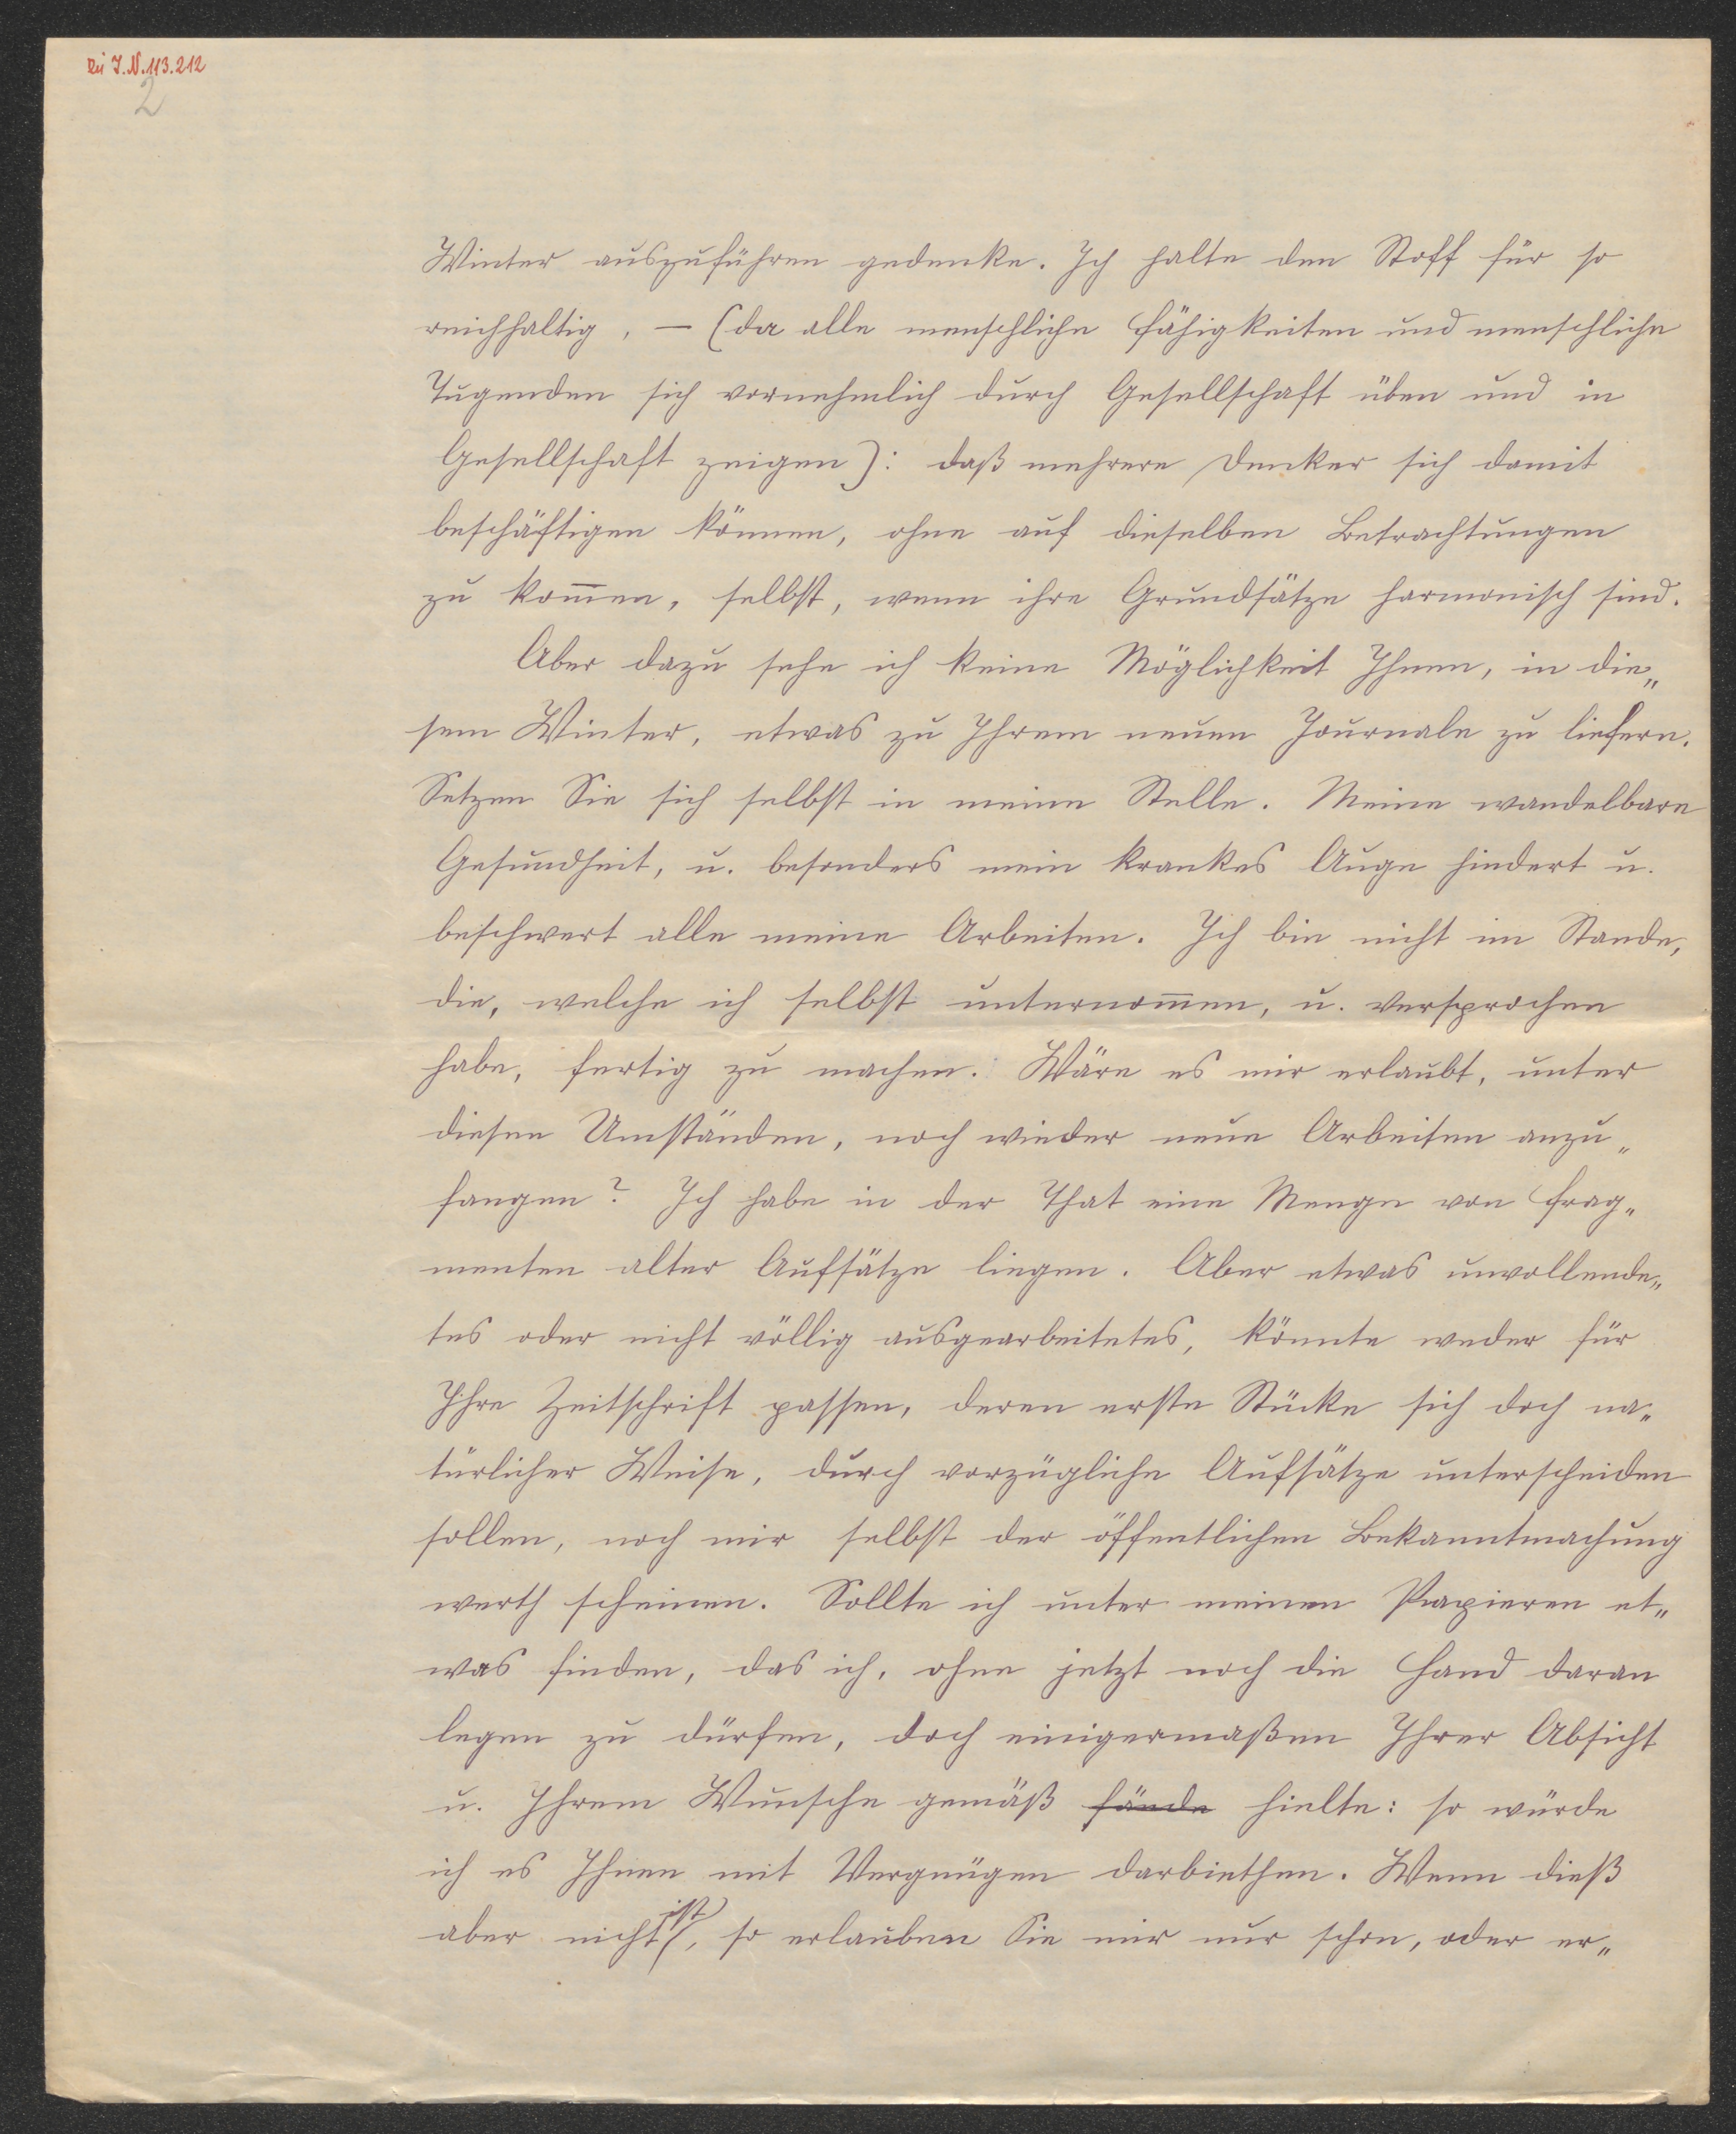 Zu I.N. 113.212
2
Winter auszuführen gedenke. Ich halte den Stoff für so
reichhaltig, — (da alle menschliche Fähigkeiten und menschliche
Tugenden sich vornehmlich durch Gesellschaft üben und in
Gesellschaft zeigen): daß mehrere Denker sich damit
beschäftigen können, ohne auf dieselben Betrachtungen
zu kom̄en, selbst, wenn ihre Grundsätze harmonisch sind.
Aber dazu sehe ich keine Möglichkeit Ihnen, in die„
sem Winter, etwas zu Ihrem neuen Journale zu liefern.
Setzen Sie sich selbst in meine Stelle. Meine wandelbare
Gesundheit, u. besonders mein krankes Auge hindert u.
beschwert alle meine Arbeiten. Ich bin nicht im Stande,
die, welche ich selbst unternom̄en, u. versprochen
habe, fertig zu machen. Wäre es mir erlaubt, unter
diesen Umständen, noch wieder neue Arbeiten anzu„
fangen? Ich habe in der That eine Menge von Frag„
menten alter Aufsätze liegen. Aber etwas unvollende„
tes oder nicht völlig ausgearbeitetes, könnte weder für
Ihre Zeitschrift passen, deren erste Stücke sich doch na„
türlicher Weise, durch vorzügliche Aufsätze unterscheiden
sollen, noch mir selbst der öffentlichen Bekanntmachung
werth scheinen. Sollte ich unter meinen Papieren et„
was finden, das ich, ohne jetzt noch die Hand daran
legen zu dürfen, doch einigermaßen Ihrer Absicht
u. Ihrem Wunsche gemäß fände hielte: so würde
ich es Ihnen mit Vergnügen darbiethen. Wenn dieß
aber nicht ist, so erlauben Sie mir nur schon, oder er„